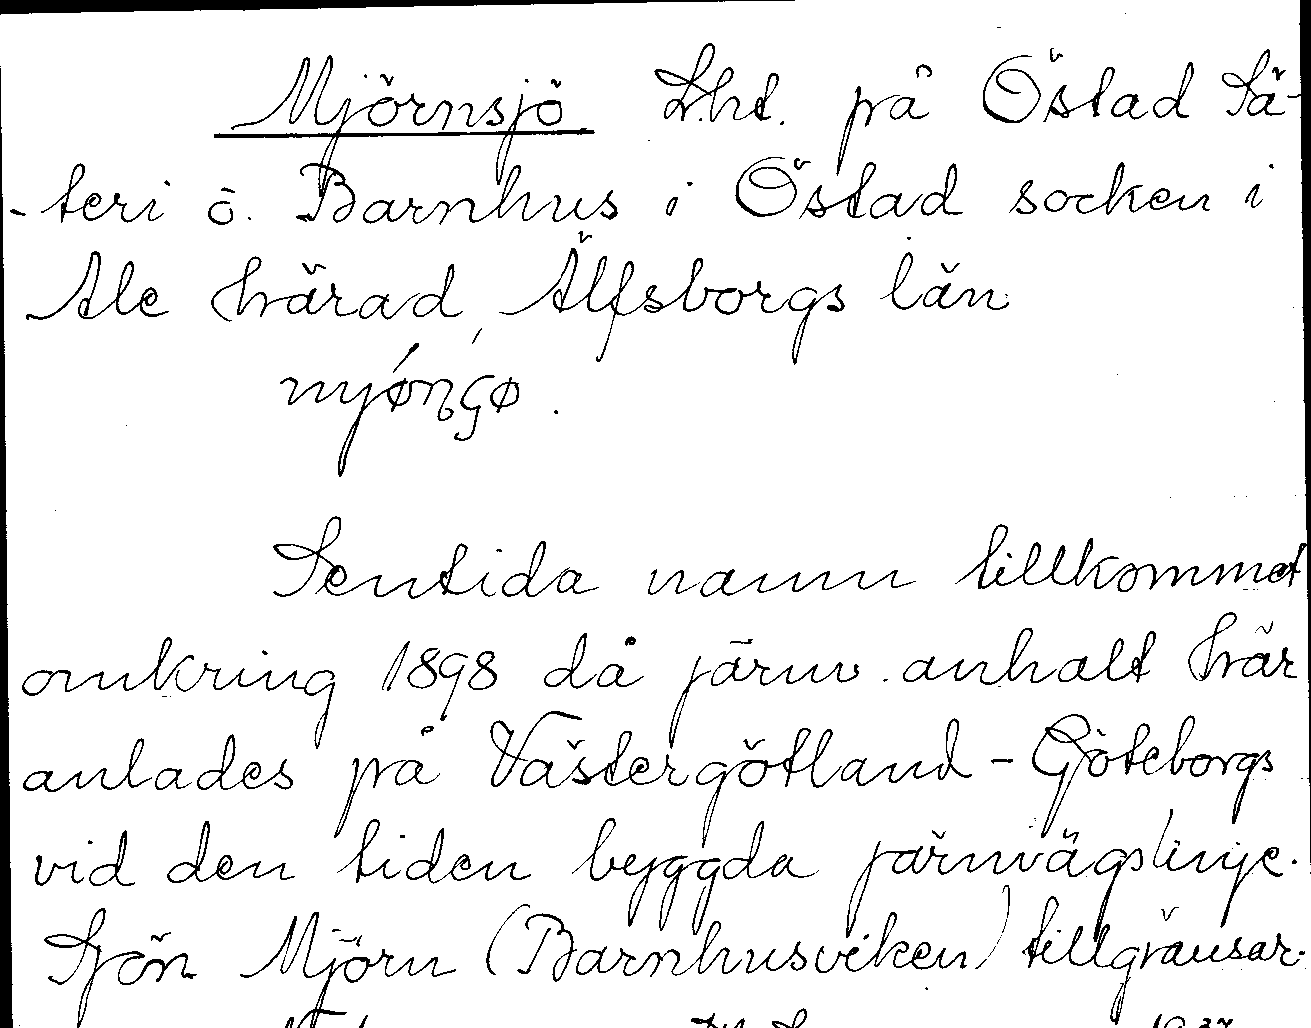 Mjörnsjö Lht. på Östad Sä-
-teri o. Barnhus i Östad socken i
Ale härad, Älfsborgs län
Sentida namn tillkommet
omkring 1898 då järnv. anhalt här
anlades på Västergötland - Göteborgs
vid den tiden byggda järnvägslinje.
Sjön Mjörn (Barnhusviken) tillgränsar.